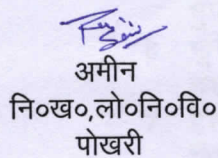 अमीन
नि०ख०,लो०नि०वि०
पोखरी